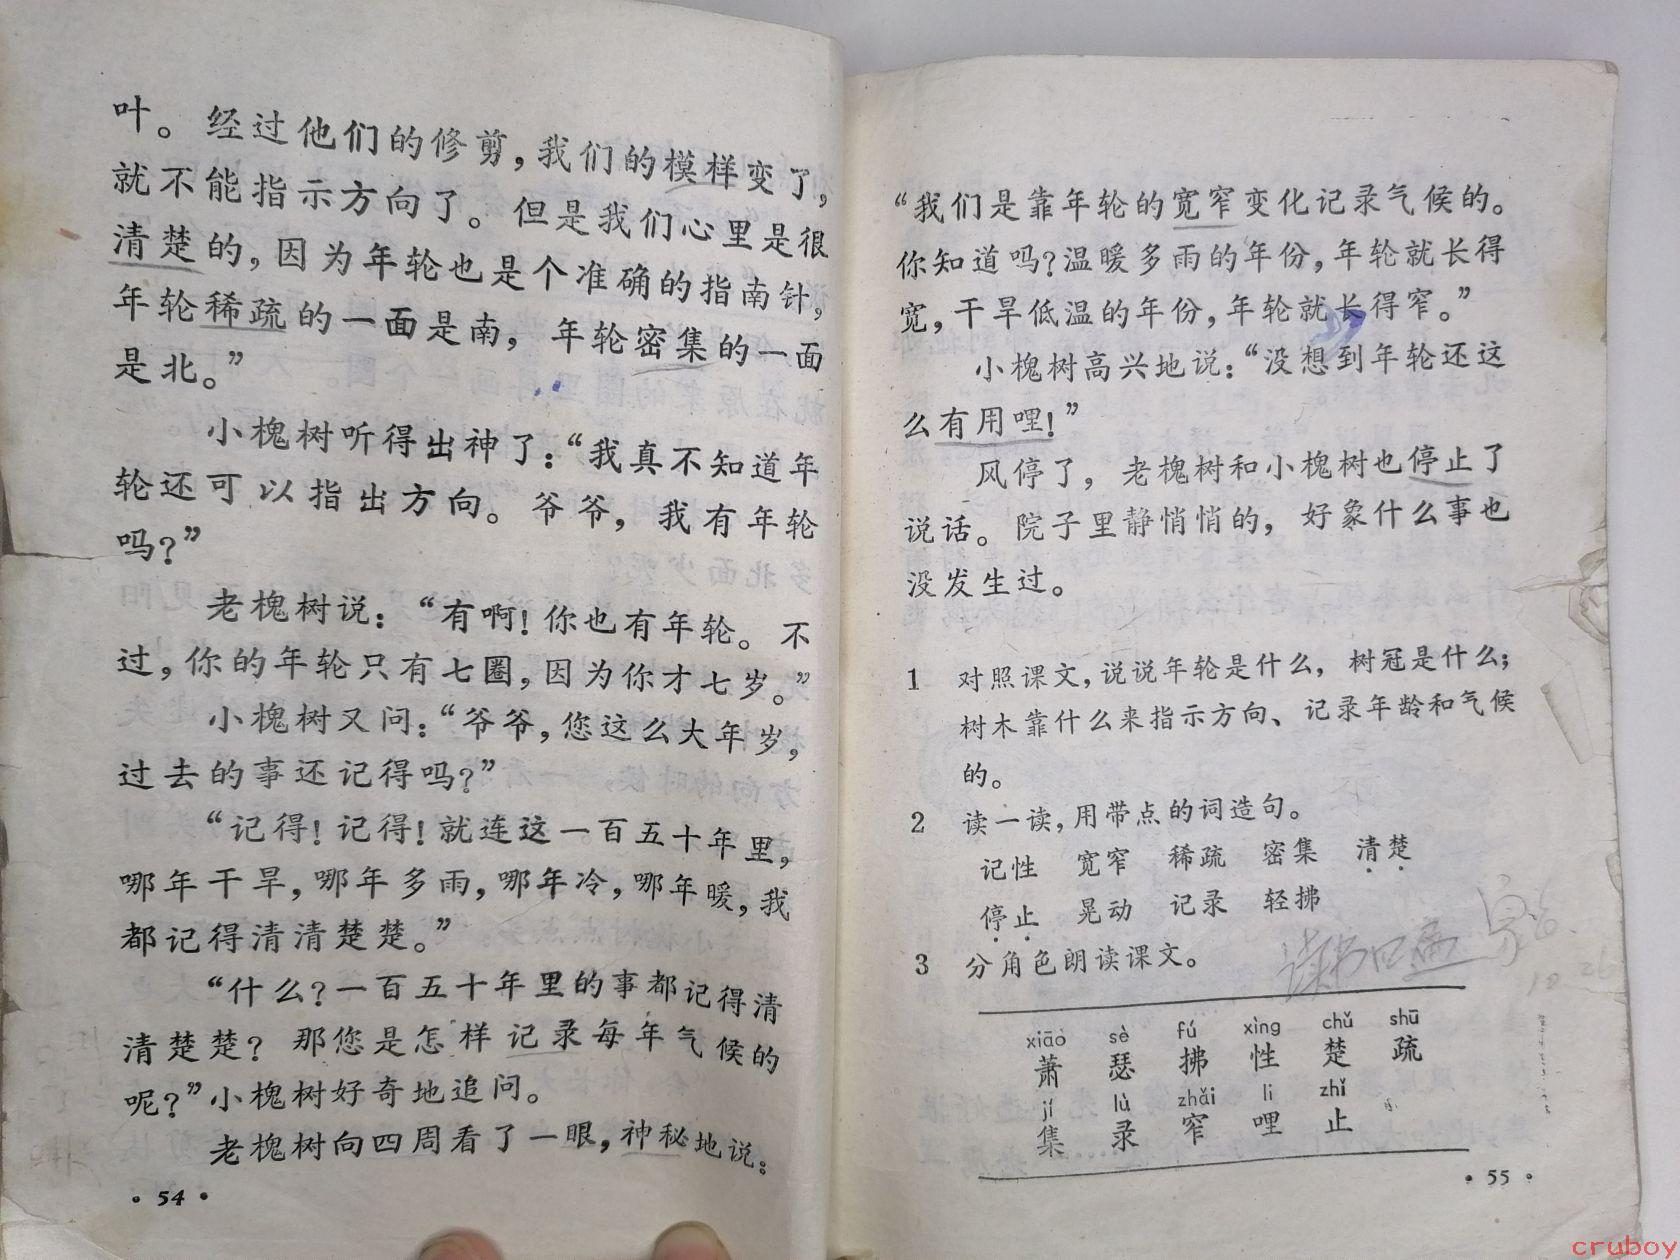 叶。经过他们的修剪，我们的模样变了，
就不能指示方向了。但是我们心里是很
清楚的，因为年轮也是个准确的指南针，
年轮稀疏的一面是南，年轮密集的一面
是北。”
小槐树听得出神了：“我真不知道年
轮还可以指出方向。爷爷，我有年轮
吗？”
老槐树说：“有啊！你也有年轮。不
过，你的年轮只有七圈，因为你才七岁。”
小槐树又问：“爷爷，您这么大年岁，
过去的事还记得吗？”
“记得！记得！就连这一百五十年里，
哪年干旱，哪年多雨，哪年冷，哪年暖，我
都记得清清楚楚。”
“什么？一百五十年里的事都记得清
清楚楚？那您是怎样记录每年气候的
呢？”小槐树好奇地追问。
老槐树向四周看了一眼，神秘地说：
• 54 •
“我们是靠年轮的宽窄变化记录气候的。
你知道吗？温暖多雨的年份，年轮就长得
宽，干旱低温的年份，年轮就长得窄。”
小槐树高兴地说：“没想到年轮还这
么有用哩！”
风停了，老槐树和小槐树也停止了
说话。院子里静悄悄的，好象什么事也
没发生过。
1 对照课文，说说年轮是什么，树冠是什么；
树木靠什么来指示方向、记录年龄和气候
的。
2 读一读，用带点的词造句。
记性 宽窄 稀疏 密集 清楚
停止 晃动 记录 轻拂
3 分角色朗读课文。
xiāo sè fú xìng chǔ shū
萧 瑟 拂 性 楚 疏
jí lù zhǎi li zhǐ
集 录 窄 哩 止
• 55 •
cruboy